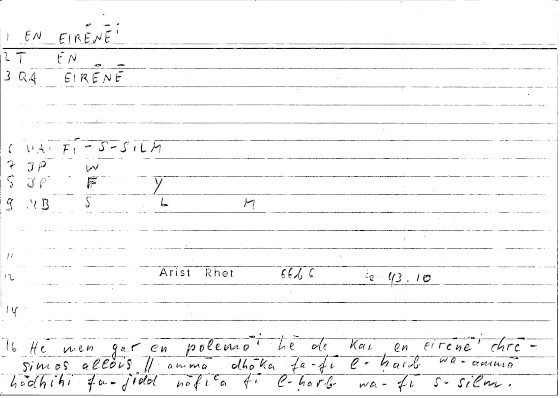 1 EN EIRĒNĒⁱ
2 T EN
3 QA EIRĒNĒ
6 WA-FĪ-S-SILM
7 JP W
8 JP F Y
9 MB S L M
11
12 Arist Rhet 66b6 43.10
14
16 Hē men gar en polemōⁱ hē de kai en eirēnēⁱ chrē-
simos allois // ammā dhāka fa-fī l-ḥarb wa-ammā
hādhihi fa-jidd nāfiʿa fī l-ḥarb wa-fī s-silm.